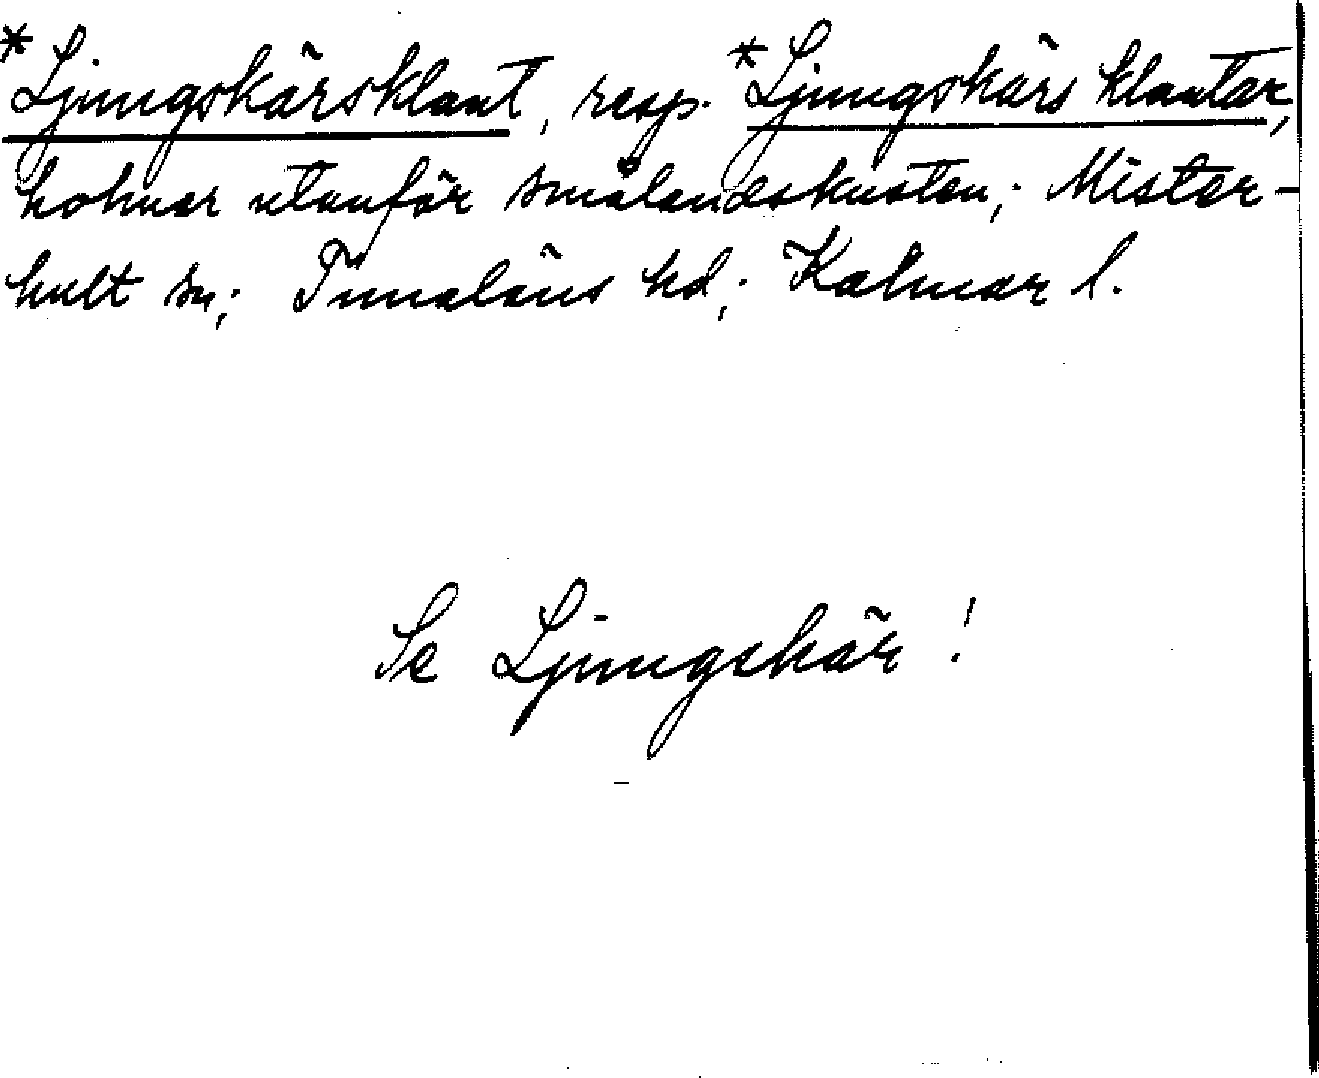 *Ljungskärsklant, resp. *Ljungskärs klantar,
holmar utanför smålandskusten; Mister-
hult sn; Tunaläns hd; Kalmar l.
Se Ljungskär!